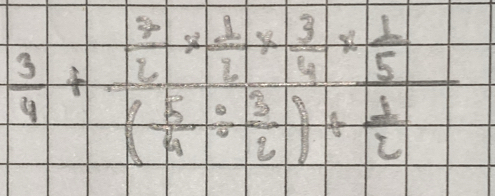 3/4 + (7/2 × 1/2 × 3/4 × 1/5) / ((5/4 ÷ 3/2) + 1/2)